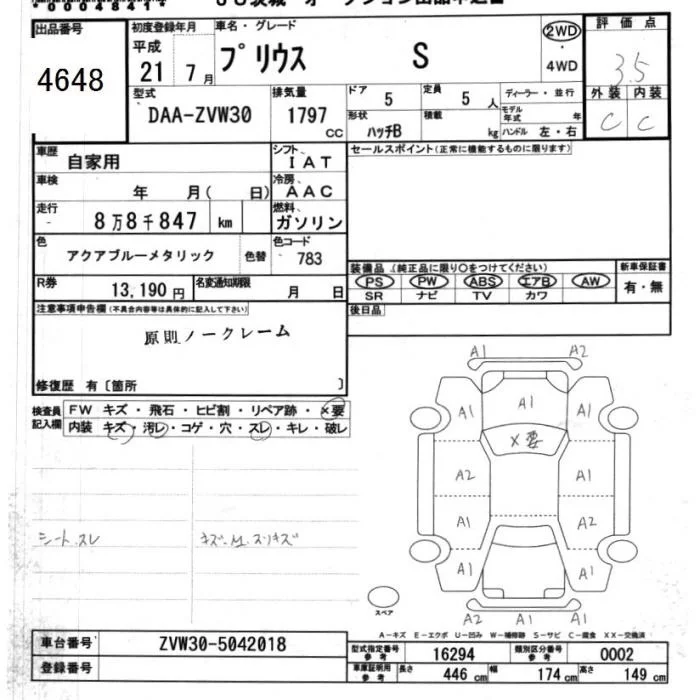 *00048411*
オークション出品申込書
出品番号
4648
初度登録年月
平成
21年 7月
車名・グレード
プリウス S
2WD
・
4WD
評価点
3.5
外装 内装
C C
型式
DAA-ZVW30
排気量
1797
CC
ドア 5
定員 5人
形状 ハッチB
積載 kg
ディーラー・並行
モデル年式 年
ハンドル 左・右
車歴
自家用
シフト、
IAT
車検
年 月( 日)
冷房、
AAC
走行
8万8千847 km
燃料、
ガソリン
色
アクアブルーメタリック
色替
色コード
783
R券
13,190円
名変通知期限
月 日
セールスポイント(正常に機能するものに限ります)
装備品(純正品に限り○をつけてください)
PS PW ABS エアB AW
SR ナビ TV カワ
新車保証書
有・無
後日品
注意事項申告欄(不具合内容等は具体的に記入して下さい)
原則ノークレーム
修復歴 有〔箇所 〕
検査員記入欄
FW キズ・飛石・ヒビ割・リペア跡・×要
内装 キズ・汚レ・コゲ・穴・スレ・キレ・破レ
シート.スレ
キズ.スリキズ
A1 A2
A1 A1 A1
×要
A2 A1
A1 A2
A1 A1
A2 A1 A1
スペア
A-キズ E-エクボ U-凹み W-補修跡 S-サビ C-腐食 XX-交換済
車台番号
ZVW30-5042018
登録番号
型式指定番号
参考
16294
類別区分番号
参考
0002
車庫証明用
参考
長さ 446cm
幅 174cm
高さ 149cm